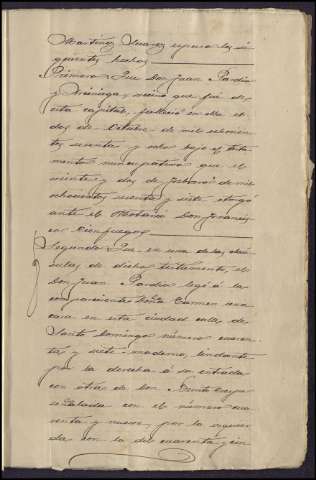 Martinez Suarez expuso los si
guientes hechos
Primero Que Don Juan Pardia
y Arénaga, vecino que fué de
esta capital, falleció en ella el
dos de Octubre de mil ochocien
tos sesenta y ocho bajo el testa
mento nuncupativo que el
veinte y dos de Febrero de mil
ochocientos sesenta y siete otorgó
ante el Notario Don Francis
co Cienfuegos
Segundo Que en una de las cláu
sulas de dicho testamento, el
Don Juan Pardia legó á la
compareciente Doña Carmen una
casa en esta ciudad calle de
Santo Domingo número cuaren
ta y siete moderno, lindante
por la derecha á su entrada
con otra de don Benito
señalada con el número cua
renta y nueve, por la izquier
da con la de cuarenta y cin